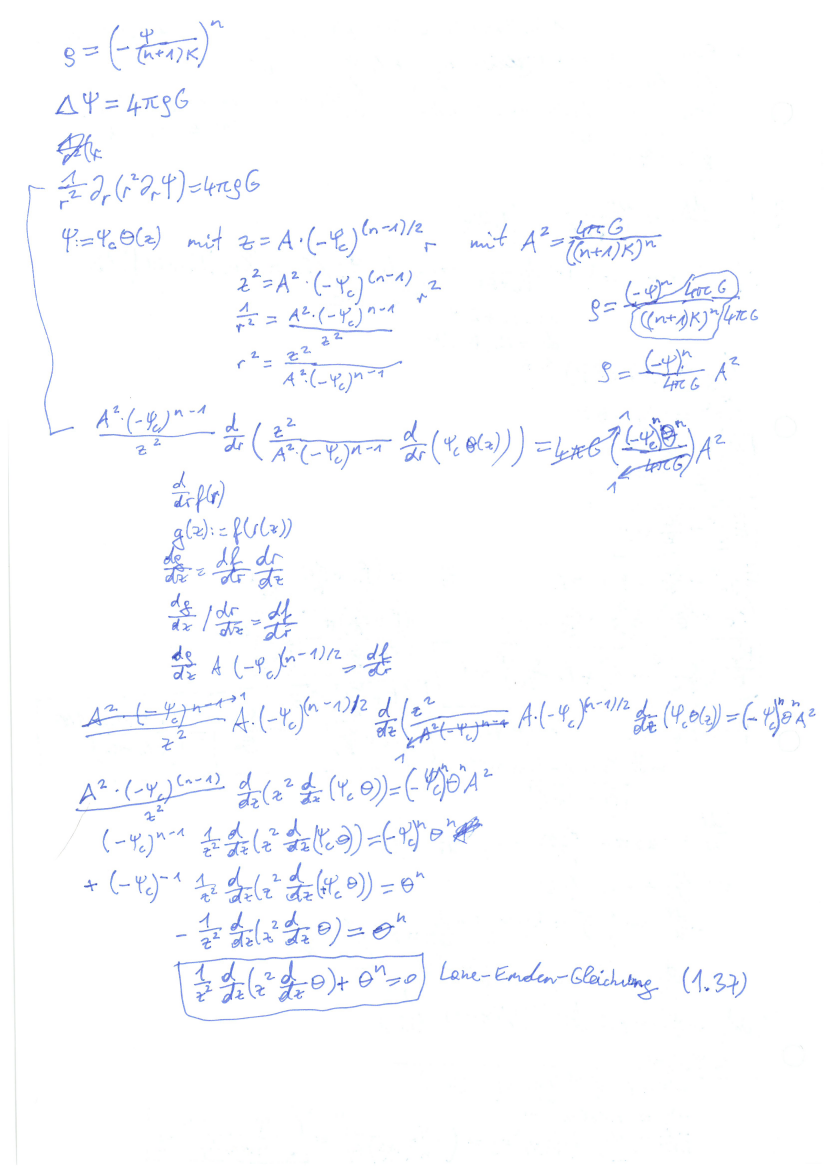 ρ = (-Ψ/((n+1)K))^n
ΔΨ = 4πρG
1/r² ∂_r(r²∂_rΨ) = 4πρG
Ψ := Ψ_c Θ(z) mit z = A·(-Ψ_c)^((n-1)/2) r mit A² = 4πG/((n+1)K)^n
z² = A²·(-Ψ_c)^(n-1) r²
1/r² = A²·(-Ψ_c)^(n-1)/z²
r² = z²/(A²·(-Ψ_c)^(n-1))
ρ = (-Ψ)^n 4πG/(((n+1)K)^n 4πG)
ρ = (-Ψ)^n/(4πG) A²
A²·(-Ψ_c)^(n-1)/z² d/dr (z²/(A²·(-Ψ_c)^(n-1)) d/dr (Ψ_c Θ(z))) = 4πG ((-Ψ_c)^n Θ^n/(4πG)) A²
d/dr f(r)
g(z) := f(r(z))
dg/dz = df/dr dr/dz
dg/dz / dr/dz = df/dr
dg/dz A (-Ψ_c)^((n-1)/2) = df/dr
A²·(-Ψ_c)^(n-1)/z² A·(-Ψ_c)^((n-1)/2) d/dz (z²/(A²(-Ψ_c)^(n-1)) A·(-Ψ_c)^((n-1)/2) d/dz (Ψ_c Θ(z))) = (-Ψ_c)^n Θ^n A²
A²·(-Ψ_c)^(n-1)/z² d/dz (z² d/dz (Ψ_c Θ)) = (-Ψ_c)^n Θ^n A²
(-Ψ_c)^(n-1) 1/z² d/dz (z² d/dz (Ψ_c Θ)) = (-Ψ_c)^n Θ^n
+ (-Ψ_c)^(-1) 1/z² d/dz (z² d/dz (+Ψ_c Θ)) = Θ^n
- 1/z² d/dz (z² d/dz Θ) = Θ^n
1/z² d/dz (z² d/dz Θ) + Θ^n = 0 Lane-Emden-Gleichung (1.37)